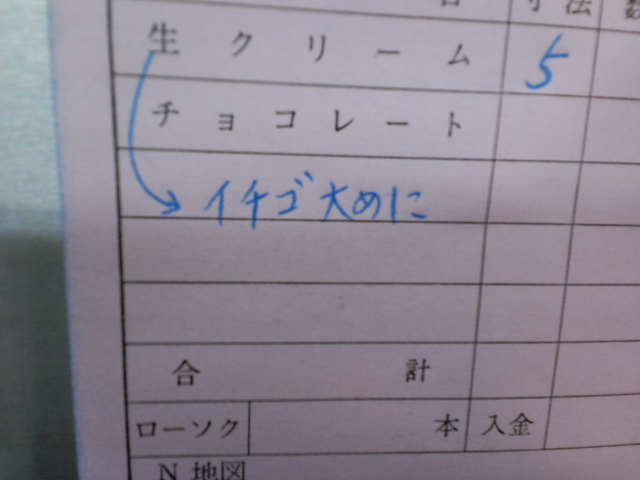 寸法 数
生クリーム 5
チョコレート
イチゴ大めに
合計
ローソク 本 入金
N 地図